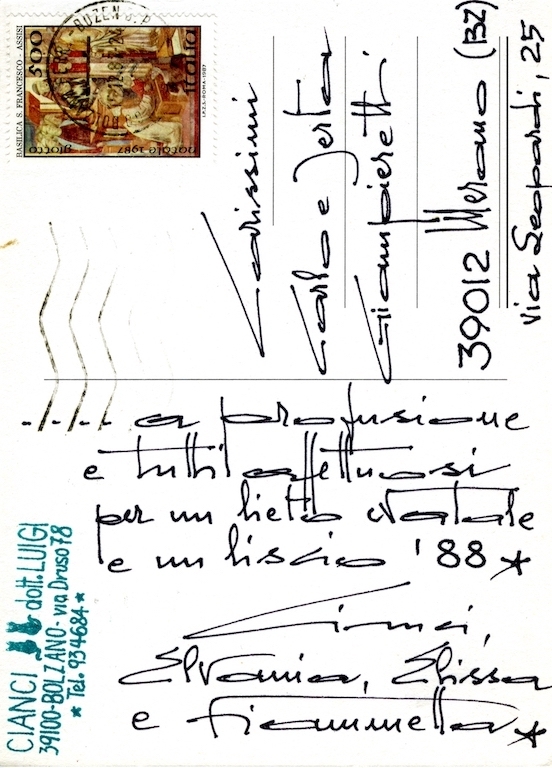 ..... a profusione
e tutti affettuosi
per un lieto Natale
e un liscio '88 *
Cianci,
Elvania, Elissa
e Fiammetta *
CIANCI dott. LUIGI
39100-BOLZANO-via Druso 78
* Tel. 934684 *
Carissimi
Carlo e Jerta
Giampieretti
39012 Merano (BZ)
via Leopardi, 25
500
italia
BASILICA S. FRANCESCO - ASSISI
giotto
natale 1987
I.P.Z.S.-ROMA-1987